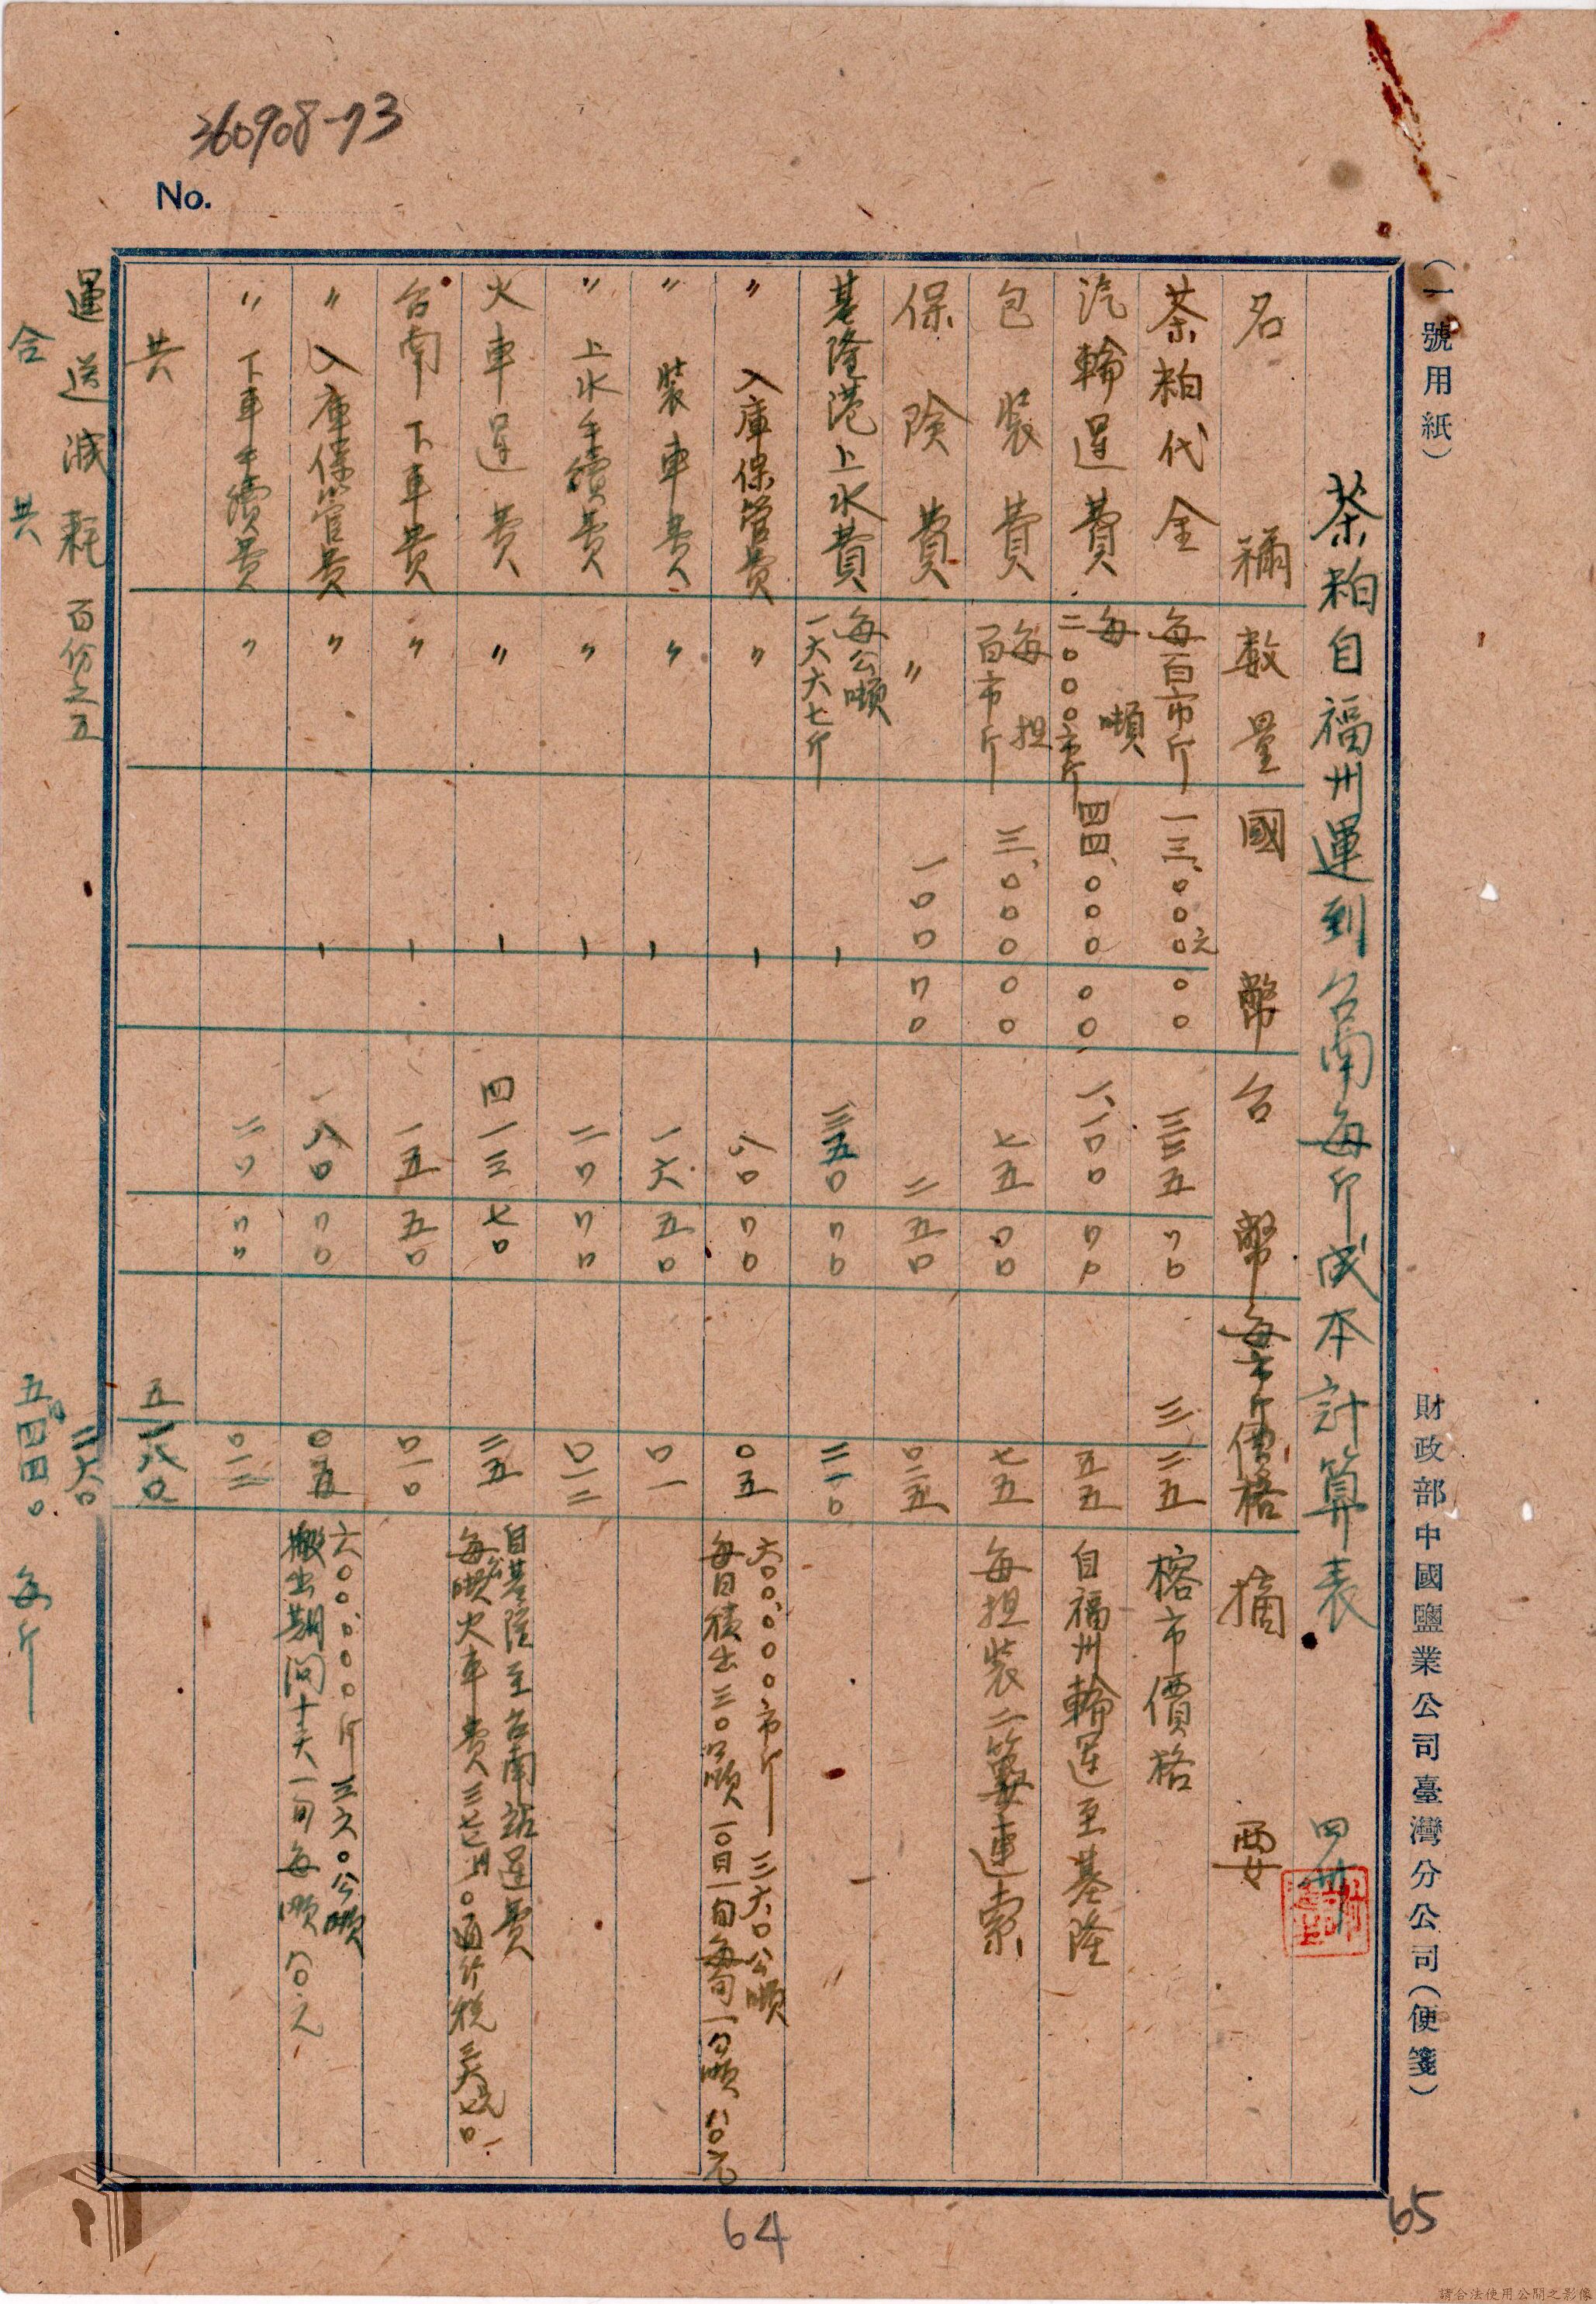 360908-73
No.
（一號用紙）
財政部中國鹽業公司臺灣分公司（便箋）
茶粕自福州運到台南每斤成本計算表
名稱 數量 國幣 台幣 每市斤價格 摘要
茶粕代金 每百市斤 一三、〇〇〇元〇〇 三二五〇〇 三二五 榕市價格
汽輪運費 每噸二〇〇〇市斤 四四、〇〇〇〇〇 一、一〇〇〇〇 五五 自福州輪運至基隆
包裝費 每担百市斤 三、〇〇〇〇〇 七五〇〇 七五 每担裝二簍連索
保險費 〃 一〇〇〇〇 二五〇 〇二五
基隆港上水費 每公噸一六六七斤 三五〇〇〇 二一〇
〃入庫保管費 〃 八〇〇〇 〇五 六〇〇、〇〇〇市斤 三六〇公噸
〃裝車費 〃 一六五〇 〇一
〃上水手續費 〃 二〇〇〇 〇一二
火車運費 〃 四一三七〇 二五 自基隆至台南站運費
台南下車費 〃 一五五〇 〇一〇
〃入庫保管費 〃 一八〇〇〇 〇五 六〇〇、〇〇〇斤 三六〇公噸
〃下車手續費 〃 二〇〇〇 〇一二
共 五一八〇
運送減耗 百份之五 二六〇
合共 五四四〇 每斤
64
65
請合法使用公開之影像